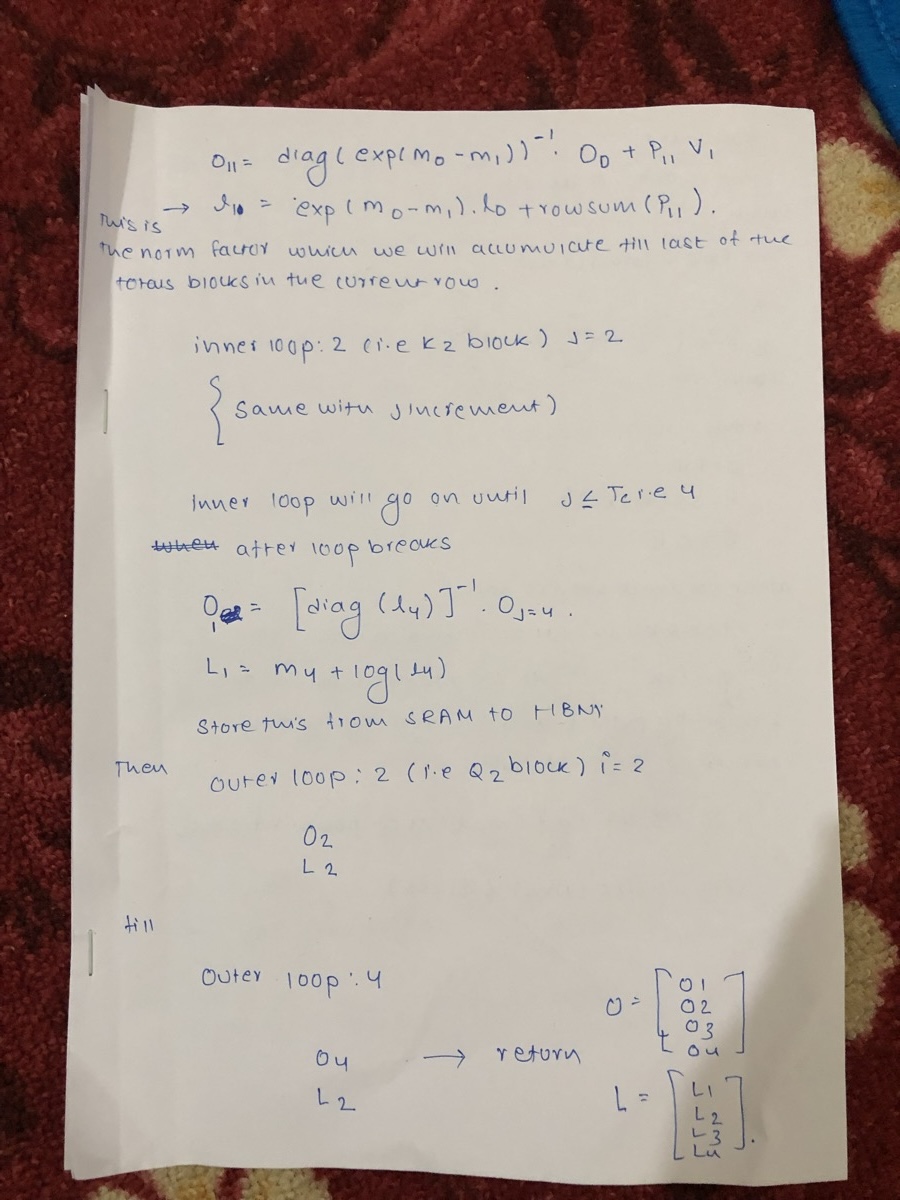 O₁₁ = diag(exp(m₀-m₁))⁻¹. O₀ + P₁₁ V₁
→ l₁₀ = exp(m₀-m₁). l₀ + rowsum(P₁₁).
This is
the norm factor which we will accumulate till last of the
blocks in the current row.
inner loop: 2 (i.e K2 block) J=2
{ Same with J increment)
Inner loop will go on until J ≤ Tc i.e 4
when after loop breaks
O₁ = [diag (l₄)]⁻¹. O_J=4.
L₁ = m₄ + log(l₄)
Store this from SRAM to HBM
Then outer loop: 2 (i.e Q2 block) i=2
O2
L2
till
Outer loop: 4
O4 → return O = [O1 O2 O3 O4]
L2 L = [L1 L2 L3 L4].